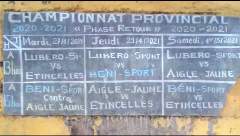 CHAMPIONNAT PROVINCIAL
2020-2021 « PHASE RETOUR » 2020-2021
Mardi, 27/4/2021 Jeudi 29/4/2021 Samedi, 1er/05/2021
LUBERO-SP LUBERO-SPORT LUBERO-SPORT
A VS VS VS
ETINCELLES BENI-SPORT AIGLE-JAUNE
BENI-SPORT AIGLE-JAUNE BENI-SPORT
A Contre VS VS
AIGLE JAUNE ETINCELLES ETINCELLES